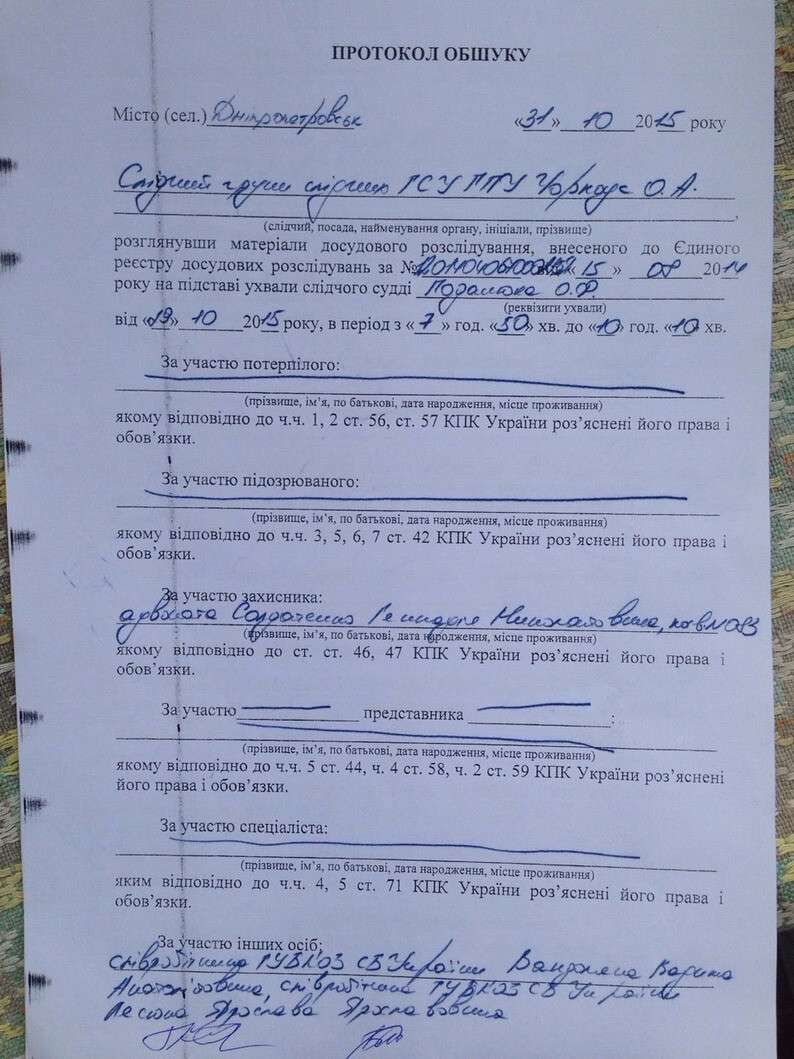 ПРОТОКОЛ ОБШУКУ
Місто (сел.) Дніпропетровськ «31» 10 2015 року
Слідчий групи слідчих ГСУ ГПУ О.А.
(слідчий, посада, найменування органу, ініціали, прізвище)
розглянувши матеріали досудового розслідування, внесеного до Єдиного
реєстру досудових розслідувань за № «15» 08 2014
року на підставі ухвали слідчого судді О.Ф.
(реквізити ухвали)
від «19» 10 2015 року, в період з «7» год. «50» хв. до «10» год. «10» хв.
За участю потерпілого:
(прізвище, ім’я, по батькові, дата народження, місце проживання)
якому відповідно до ч.ч. 1, 2 ст. 56, ст. 57 КПК України роз’яснені його права і
обов’язки.
За участю підозрюваного:
(прізвище, ім’я, по батькові, дата народження, місце проживання)
якому відповідно до ч.ч. 3, 5, 6, 7 ст. 42 КПК України роз’яснені його права і
обов’язки.
За участю захисника:
адвоката
(прізвище, ім’я, по батькові, дата народження, місце проживання)
якому відповідно до ст. ст. 46, 47 КПК України роз’яснені його права і
обов’язки.
За участю представника :
(прізвище, ім’я, по батькові, дата народження, місце проживання)
якому відповідно до ч.ч. 5 ст. 44, ч. 4 ст. 58, ч. 2 ст. 59 КПК України роз’яснені
його права і обов’язки.
За участю спеціаліста:
(прізвище, ім’я, по батькові, дата народження, місце проживання)
яким відповідно до ч.ч. 4, 5 ст. 71 КПК України роз’яснені його права і
обов’язки.
За участю інших осіб:
співробітника ГУБКОЗ СБ України Вадима
Анатолійовича, співробітника ГУБКОЗ СБ України
Ярослава Ярославовича